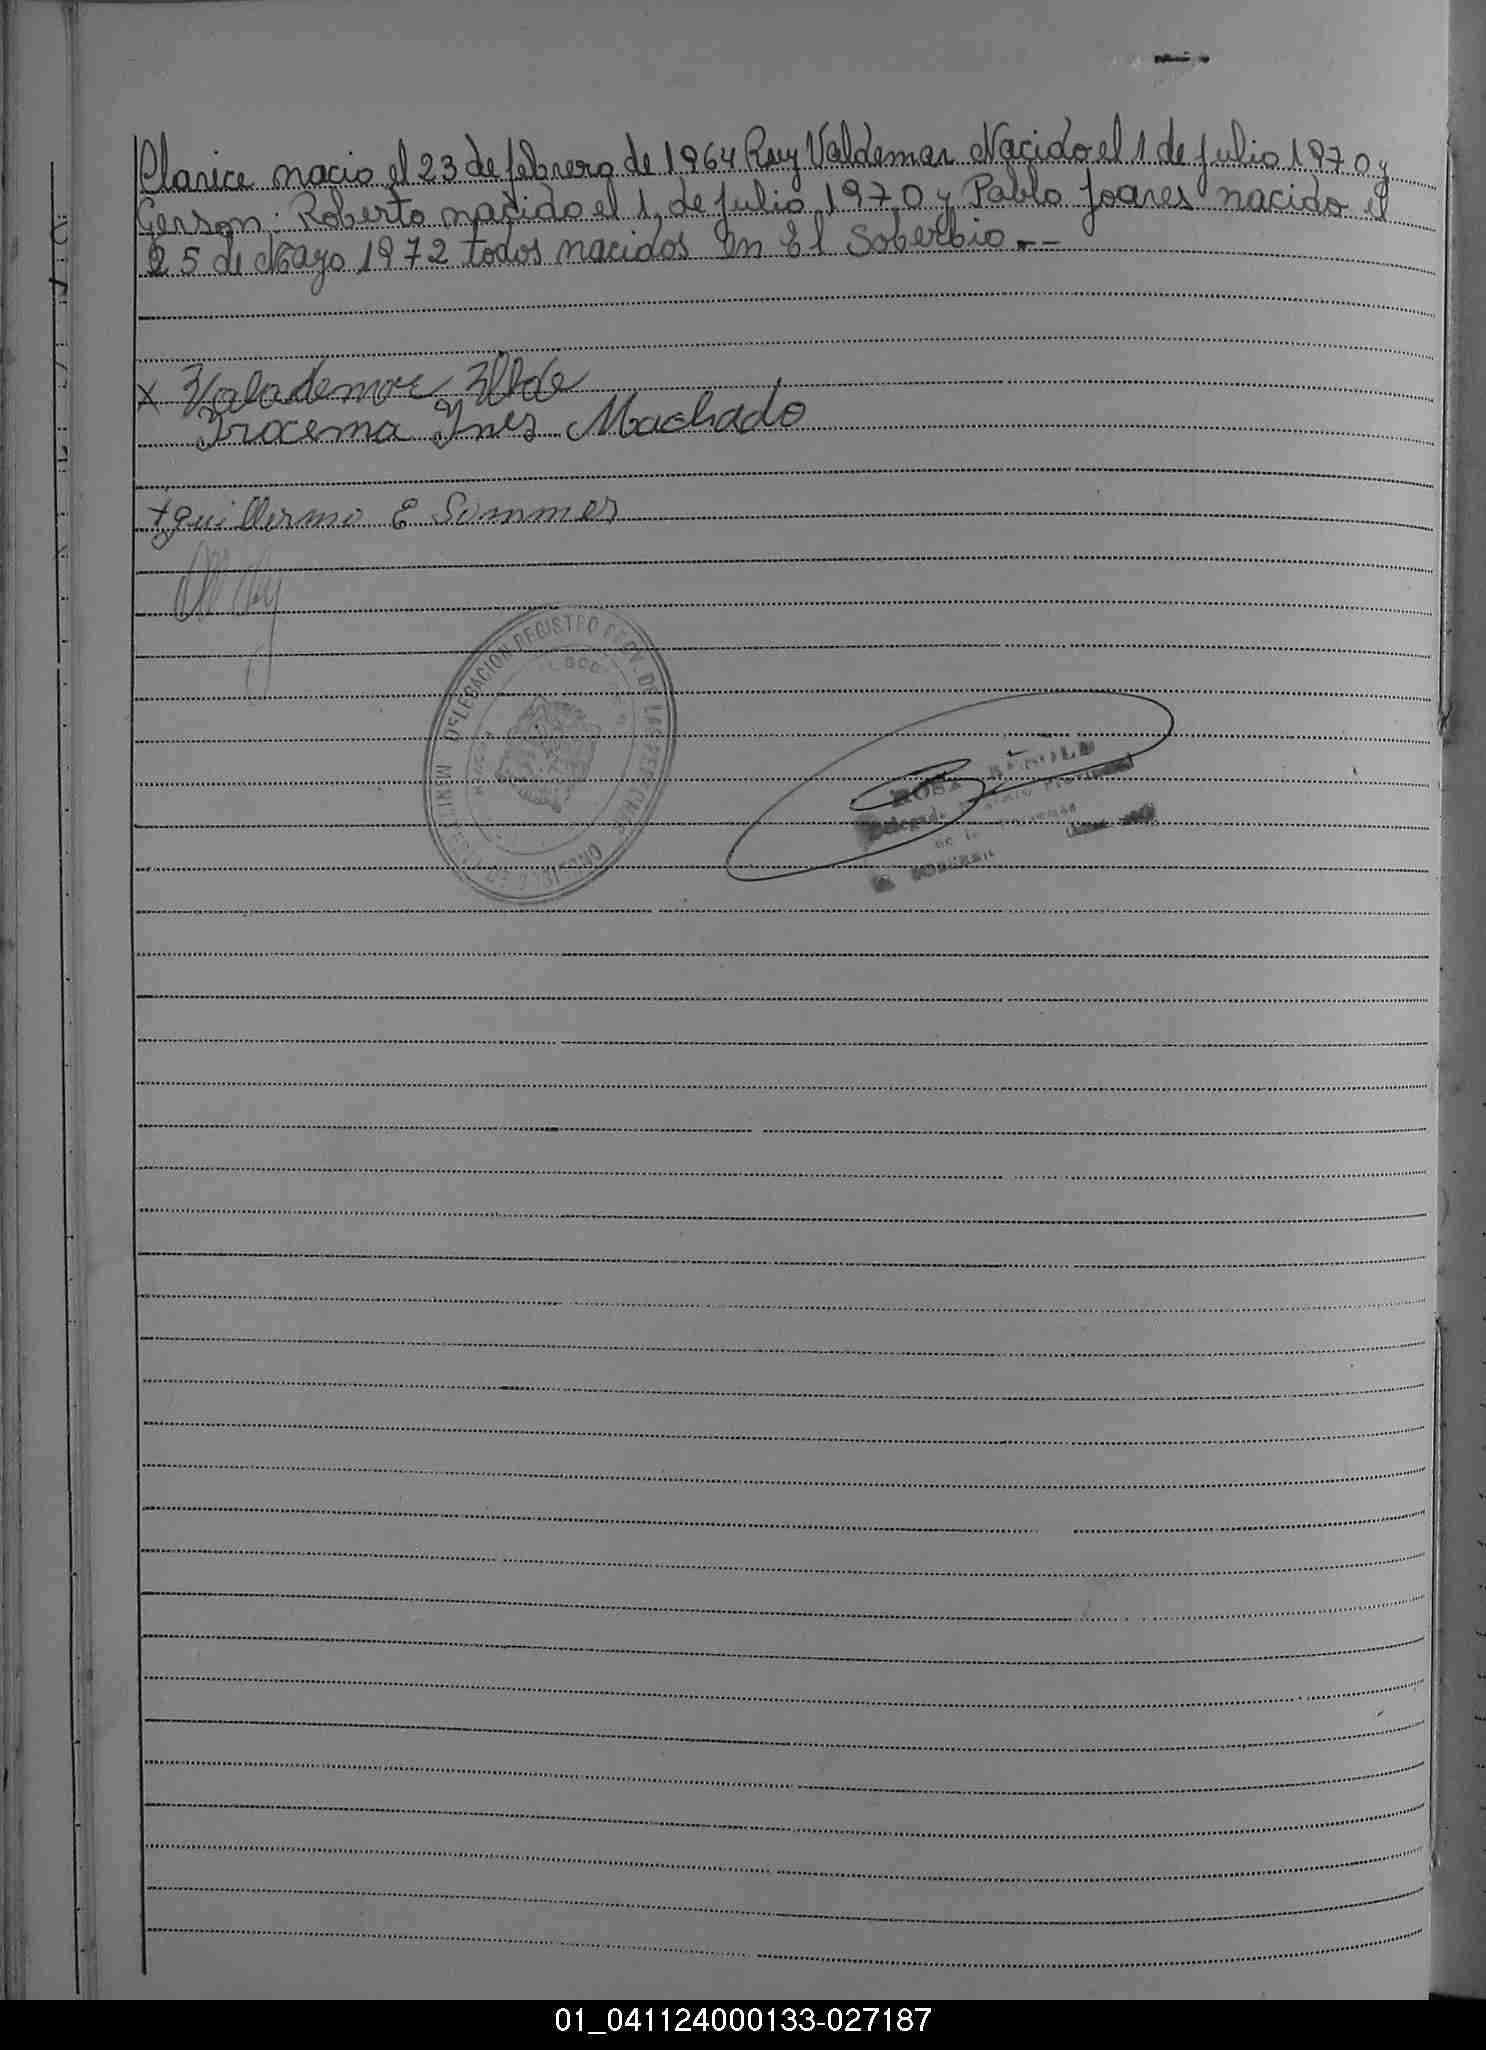 Clarice nacio el 23 de febrero de 1964 Ruy Valdemar Nacido el 1 de Julio 1970 y
Gerson: Roberto nacido el 1, de Julio 1970 y Pablo Joares nacido el
25 de Mayo 1972 todos nacidos en El Soberbio.--
x Valademar
Iracema Ines Machado
+ guillermo E Sommer
DELEGACION REGISTRO PROV. DE LAS PERSONAS
ROSA
Delegada Registro Provincial
de las Personas
EL SOBERBIO
01_041124000133-027187